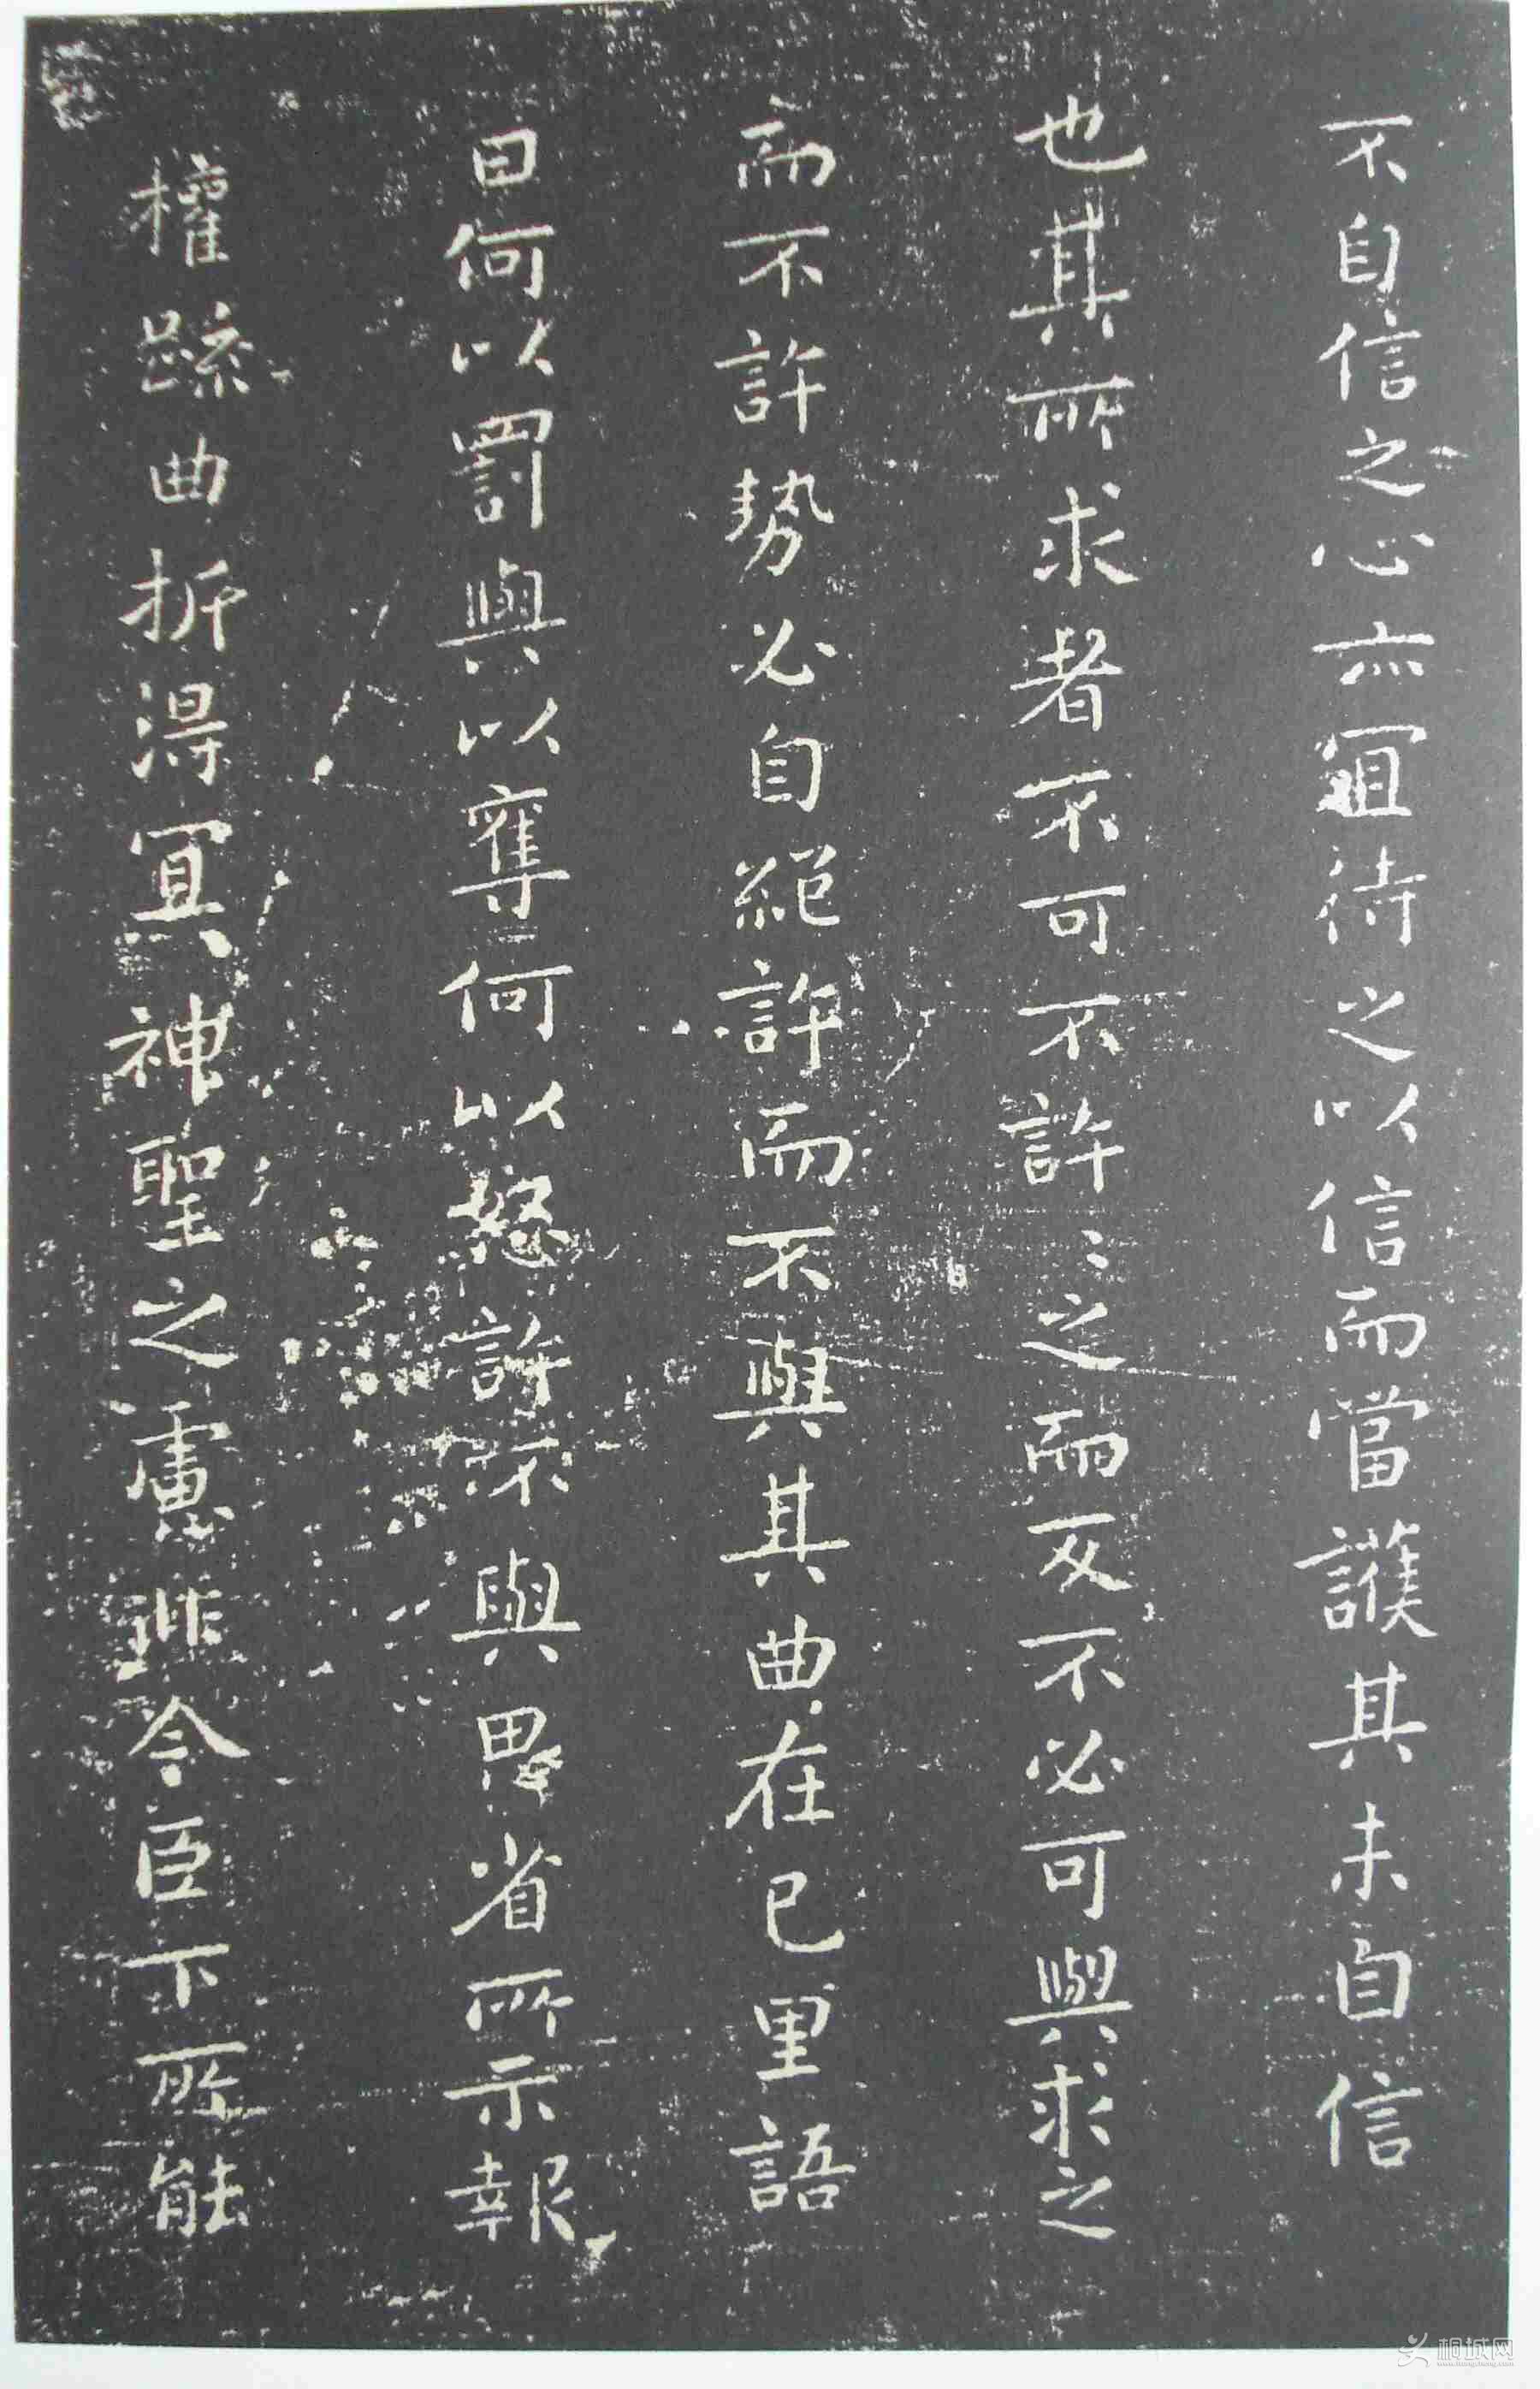 不自信之心亦宜待之以信而當護其未自信
也其所求者不可不許許之而反不必可與求之
而不許勢必自絕許而不與其曲在己里語
曰何以罰與以奪何以怒許不與思省所示報
權疏曲折得宜神聖之慮非今臣下所能
桐城网